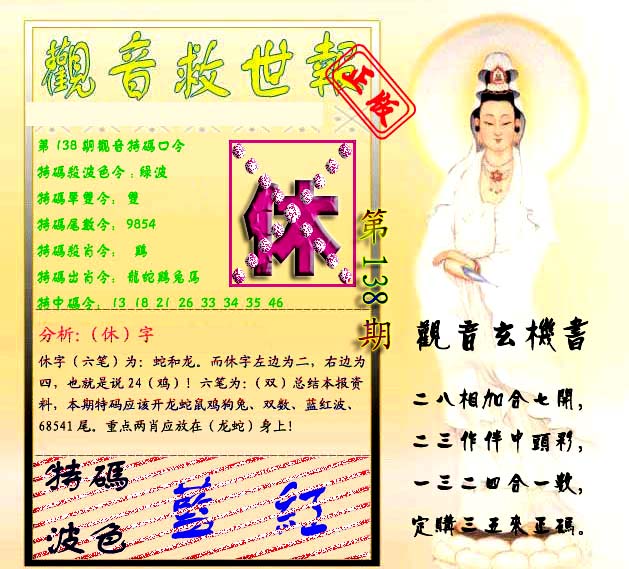 觀音救世報
正版
第138期觀音特碼口令
特碼殺波色令：綠波
特碼單雙令： 雙
特碼尾數令： 9854
特碼殺肖令： 鷄
特碼出肖令： 龍蛇鷄兔馬
特中碼令： 13 18 21 26 33 34 35 46
休
第138期
分析:（休）字
休字（六笔）为：蛇和龙。而休字左边为二，右边为
四，也就是说 24（鸡）！六笔为:（双）总结本报资
料，本期特码应该开龙蛇鼠鸡狗兔、双数、蓝红波、
68541 尾。重点两肖应放在（龙蛇）身上！
特碼
波色
藍 紅
觀音玄機書
二八相加合七開，
二三作伴中頭彩，
一三二四合一數，
定購三五來正碼。